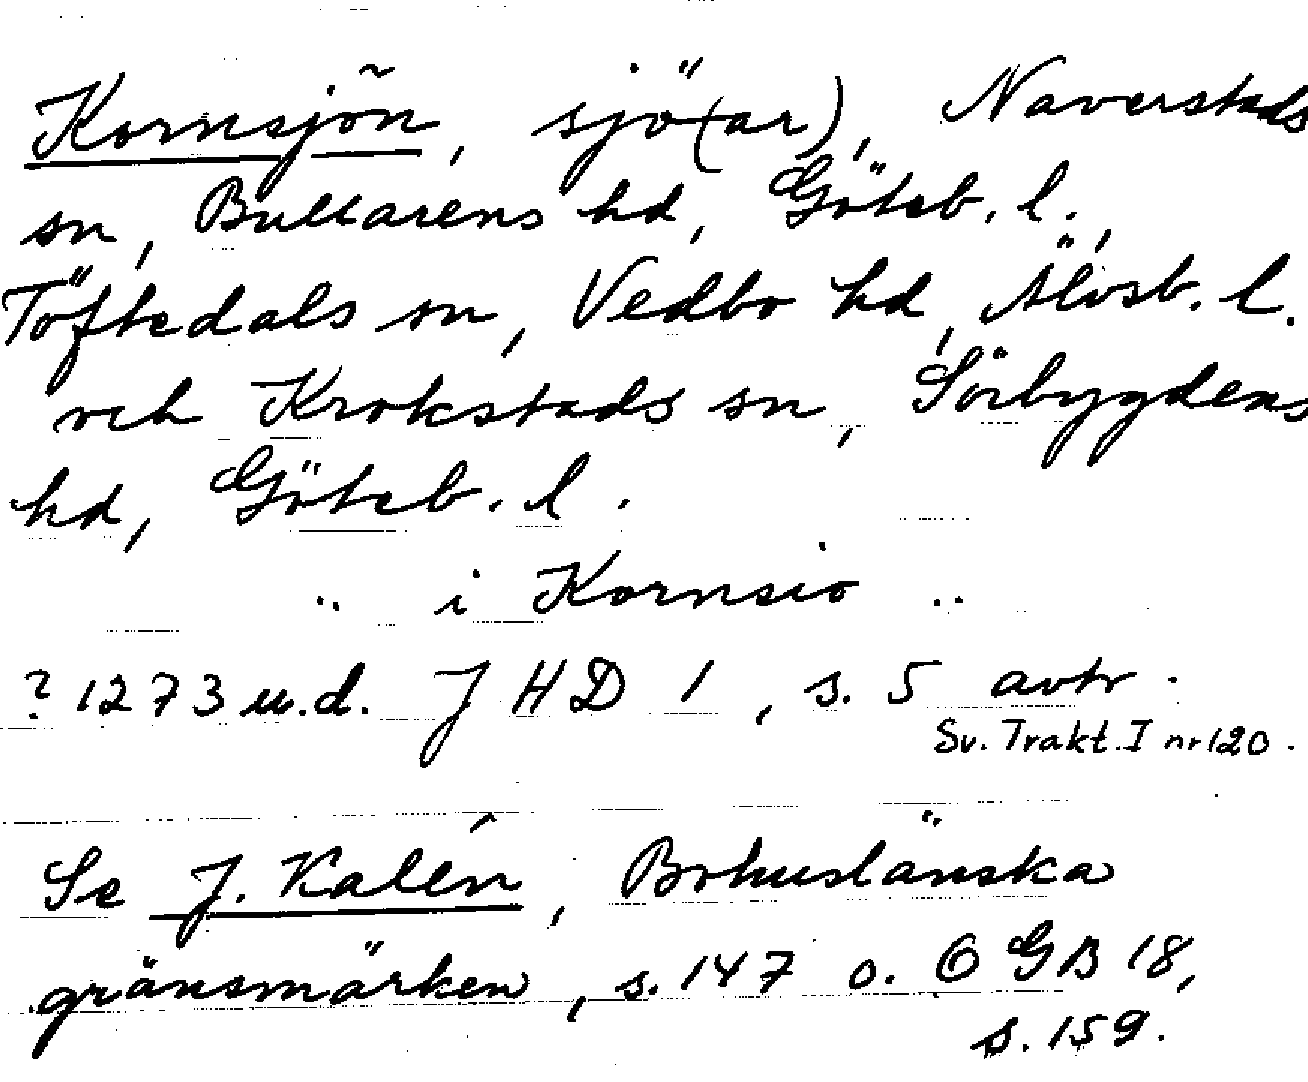 Kornsjön, sjö(ar), Naverstads
sn, Bullarens hd, Göteb. l.,
Töftedals sn, Vedbo hd, Älvsb. l.
och Krokstads sn, Sörbygdens
hd, Göteb. l.
.. i Kornsio ..
? 1273 u.d. JHD 1, s. 5 avtr.
Sv. Trakt. I nr 120.
Se J. Kalén, Bohuslänska
gränsmärken, s. 147 o. OGB 18,
s. 159.